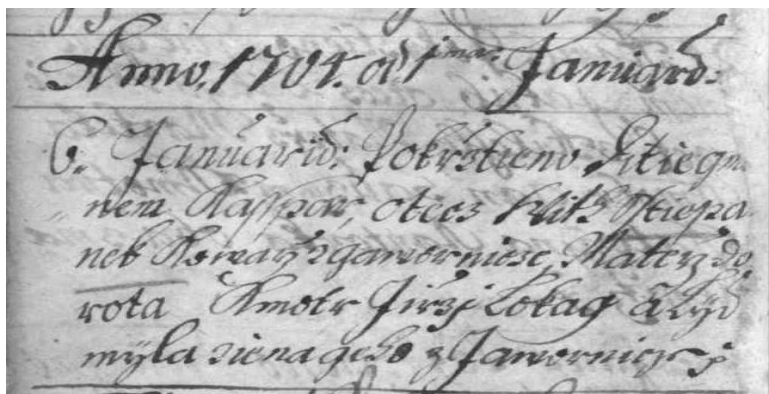 Anno. 1704. od 1mas. Januard:
6. Januarid: Pokrztieno ditie gm
nem Kasspar, otiecz Stiepa
nek Kowarz z gawornicze, Mater do
rota Kmotr Jirzj Lokag a Lyd
myla ziena geho z Jawornicz